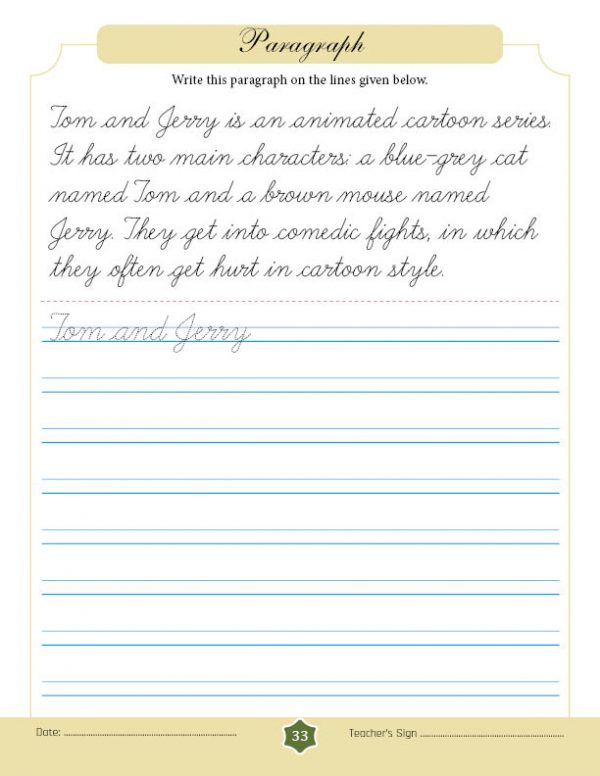 Paragraph
Write this paragraph on the lines given below.
Tom and Jerry is an animated cartoon series.
It has two main characters: a blue-grey cat
named Tom and a brown mouse named
Jerry. They get into comedic fights, in which
they often get hurt in cartoon style.
Tom and Jerry
Date:
33
Teacher's Sign